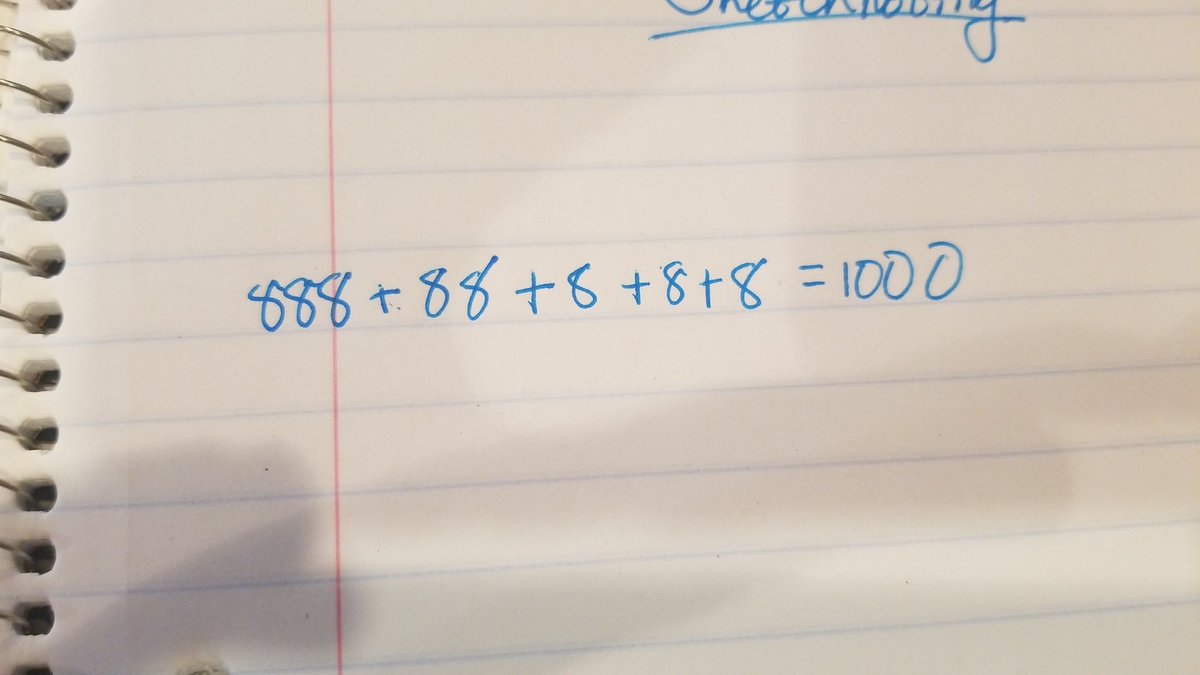 Sketchnoting
888 + 88 + 8 + 8 + 8 = 1000